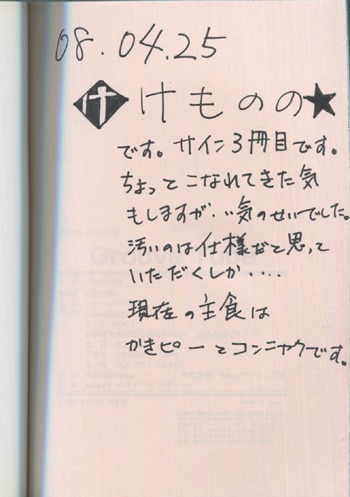 08.04.25
け けものの★
です。サイン3冊目です。
ちょっとこなれてきた気
もしますが‥気のせいでした。
汚いのは仕様だと思って
いただくしか‥‥
現在の主食は
かきピーとコンニャクです。